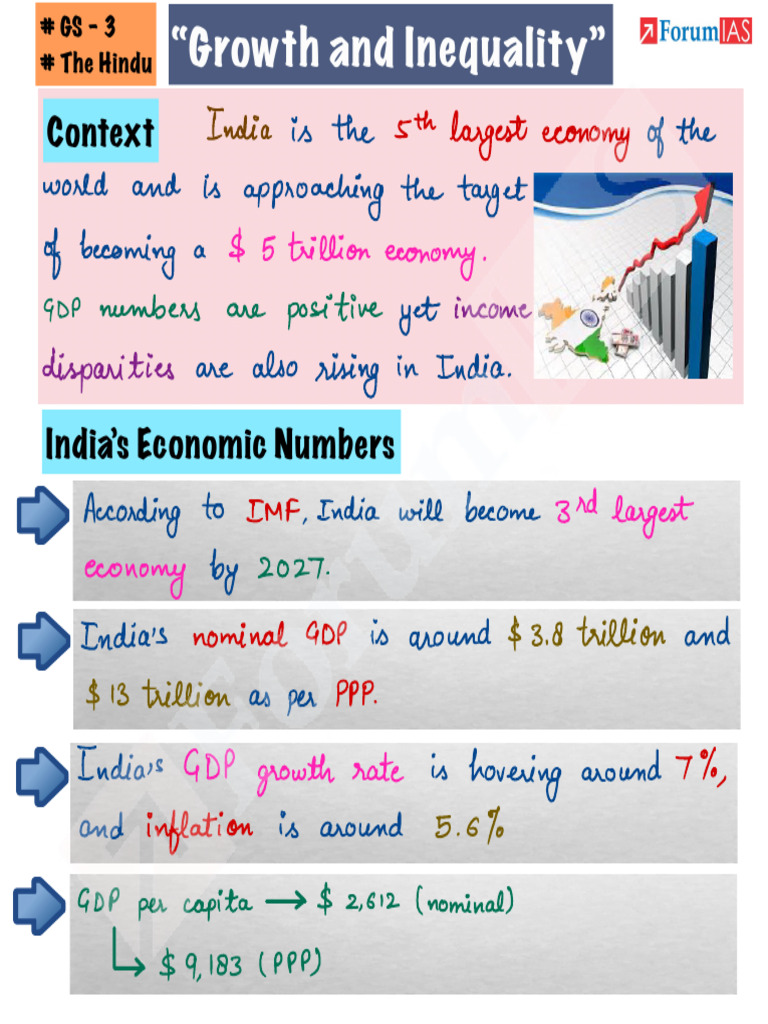 # GS - 3
# The Hindu
“Growth and Inequality”
ForumIAS
Context India is the 5th largest economy of the
world and is approaching the target
of becoming a $ 5 trillion economy.
GDP numbers are positive yet income
disparities are also rising in India.
India's Economic Numbers
According to IMF, India will become 3rd largest
economy by 2027.
India's nominal GDP is around $ 3.8 trillion and
$ 13 trillion as per PPP.
India's GDP growth rate is hovering around 7%,
and inflation is around 5.6%
GDP per capita → $ 2,612 (nominal)
↳ $ 9,183 (PPP)
ForumIAS